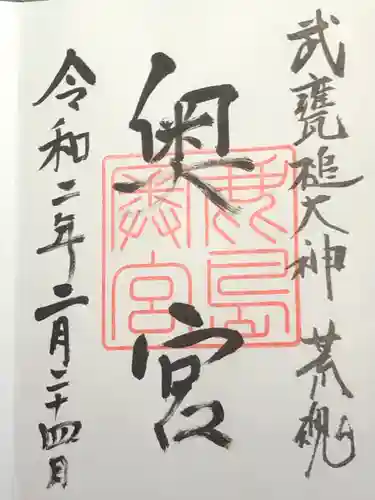 武甕槌大神 荒魂
奥宮
鹿島奥宮
令和二年二月二十四日